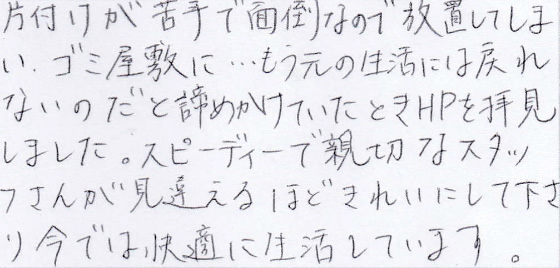 片付けが苦手で面倒なので放置してしま
い、ゴミ屋敷に…もう元の生活には戻れ
ないのだと諦めかけていたときHPを拝見
しました。スピーディーで親切なスタッ
フさんが見違えるほどきれいにして下さ
り今では、快適に生活しています。